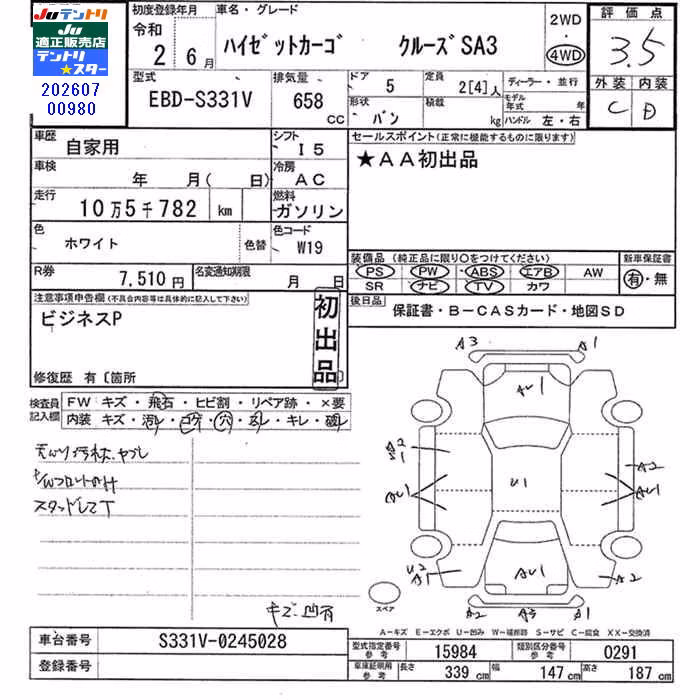 JUテントリ
JU
適正販売店
テントリ
★スター
202607
00980
初度登録年月
令和
2 6月
車名・グレード
ハイゼットカーゴ クルーズSA3
2WD
・
4WD
評価点
3.5
外装 内装
C D
型式
EBD-S331V
排気量
658
CC
ドア
5
形状
バン
定員
2[4]人
積載
kg
ディーラー・並行
モデル年式 年
ハンドル 左・右
車歴
自家用
シフト
I5
車検
年 月( 日)
冷房
AC
走行
10万5千782 km
燃料
ガソリン
色
ホワイト
色替
色コード
W19
R券
7,510円
名変通知期限
月 日
セールスポイント(正常に機能するものに限ります)
★AA初出品
装備品(純正品に限り〇をつけてください)
PS PW ABS エアB AW
SR ナビ TV カワ
新車保証書
有・無
後日品
保証書・B-CASカード・地図SD
注意事項申告欄(不具合内容等は具体的に記入して下さい)
ビジネスP
初出品
修復歴 有〔箇所
検査員記入欄
FW キズ・飛石・ヒビ割・リペア跡・×要
内装 キズ・汚レ・コゲ・穴・スレ・キレ・破レ
スタッドレスT
キズ凹有
A3 A1
AU1
A2
S1
A2
AU1
U1
AU1
U2
A1
AU1
A2
スペア
A2 A3 A1
A-キズ E-エクボ U-凹み W-補修跡 S-サビ C-腐食 XX-交換済
車台番号
S331V-0245028
登録番号
型式指定番号
参考
15984
類別区分番号
参考
0291
車庫証明用
参考
長さ 339cm 幅 147cm 高さ 187cm